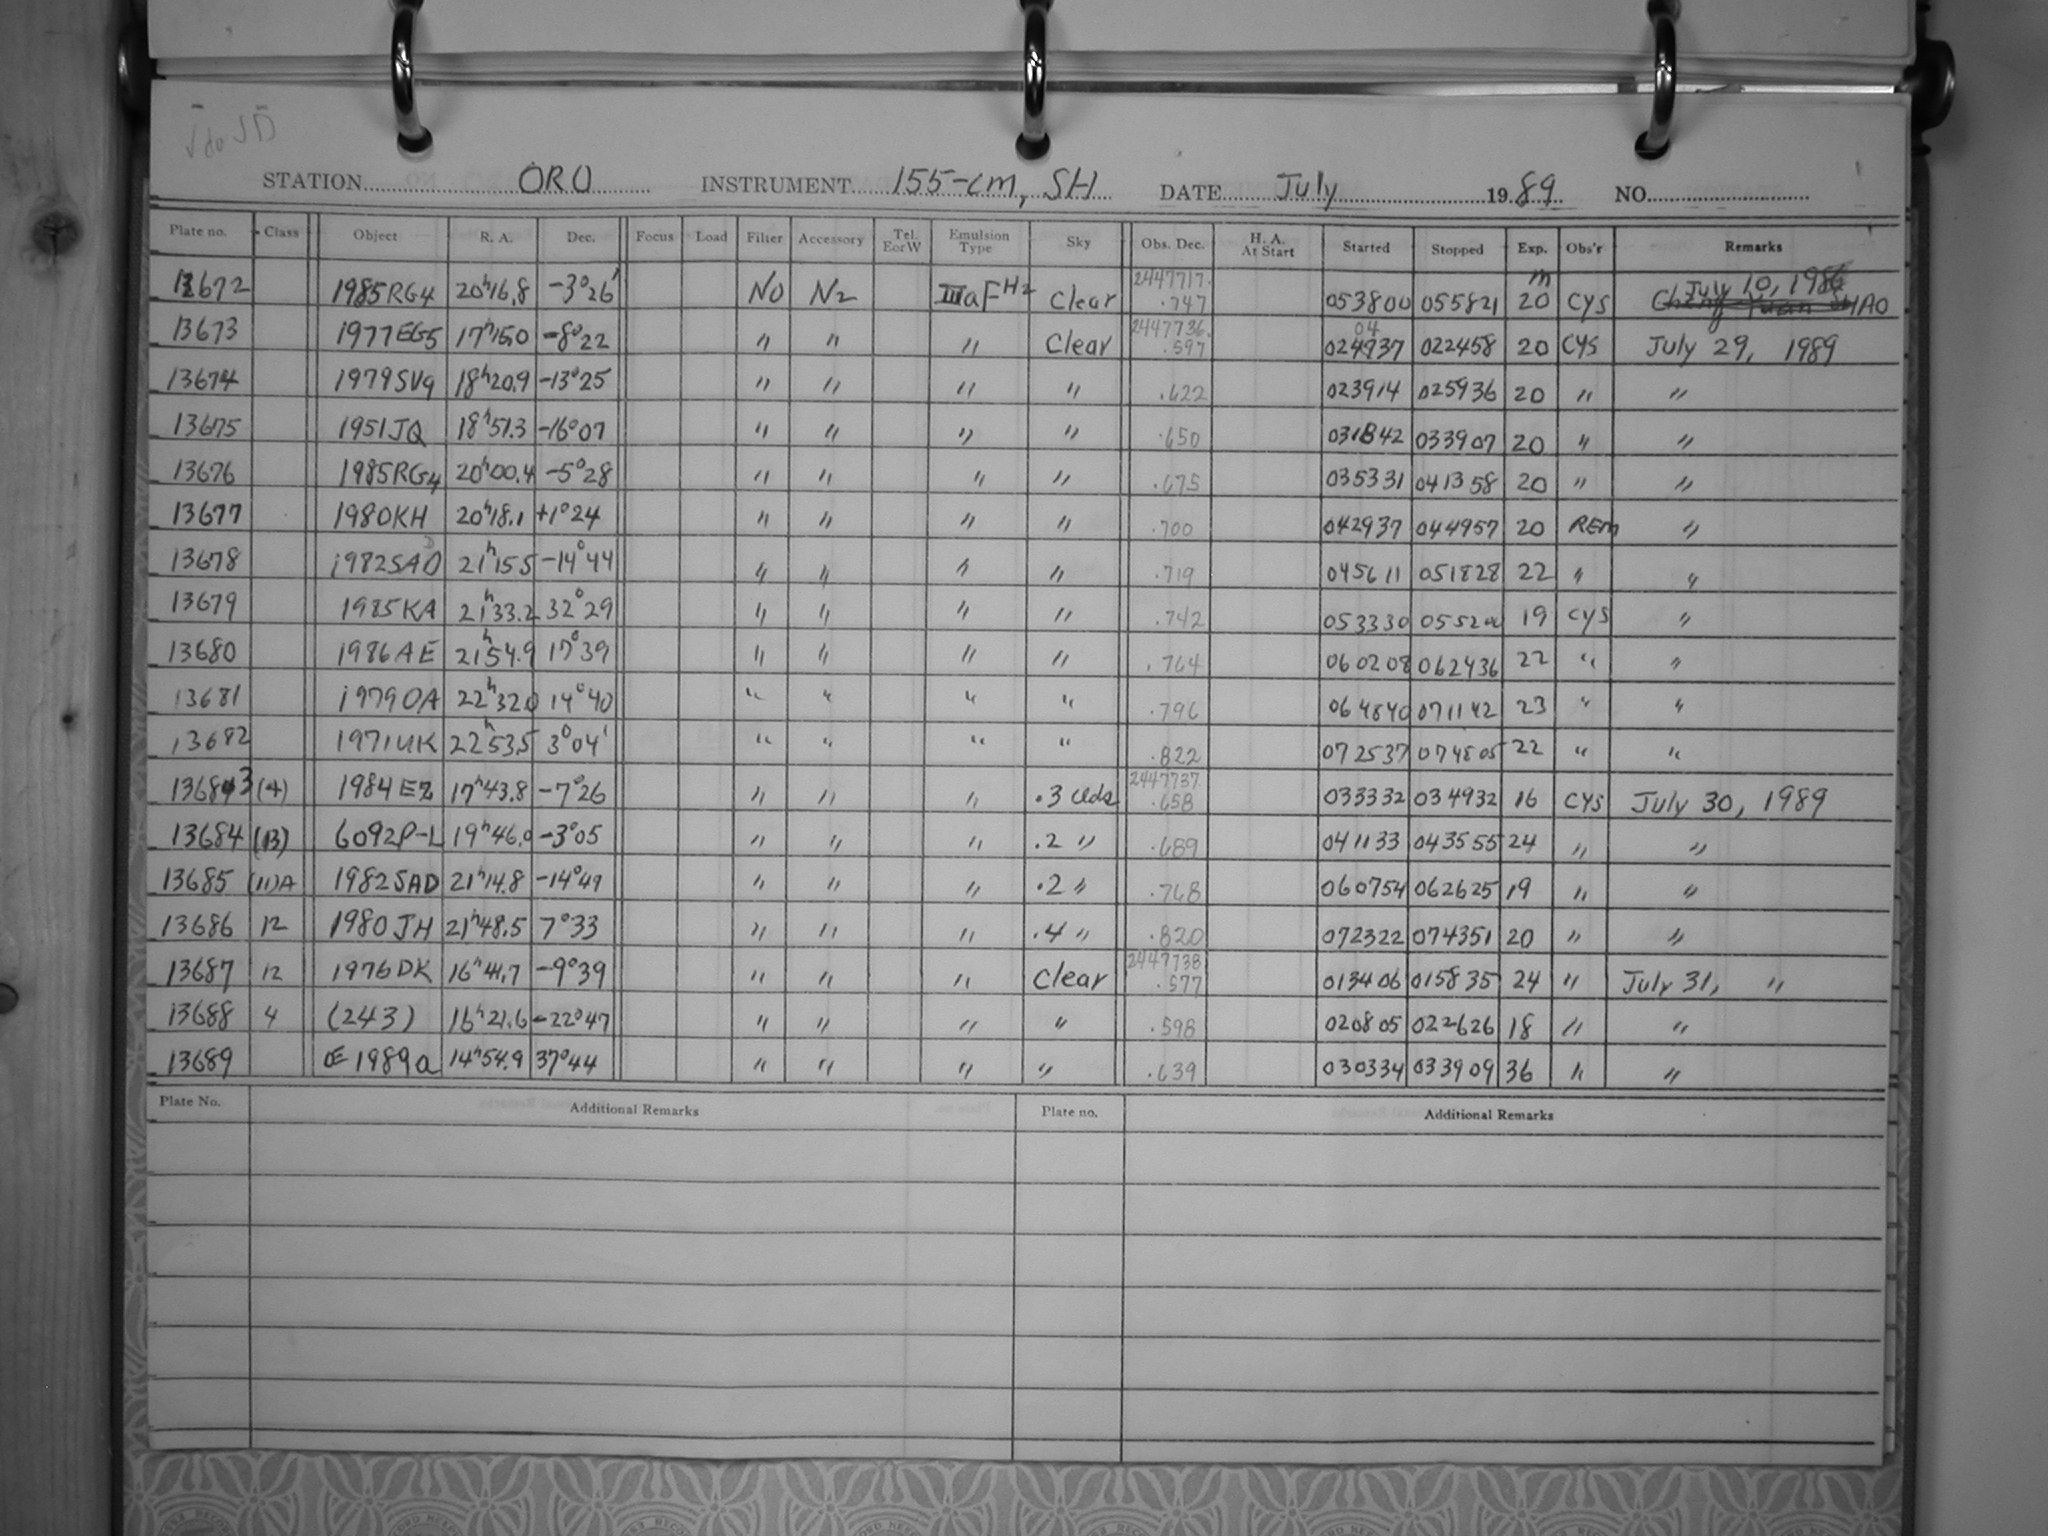 √ do JD
STATION ORO INSTRUMENT 155-cm, SH DATE July 1989 NO.
Plate no. Class Object R. A. Dec. Focus Load Filter Accessory Tel. E or W Emulsion Type Sky Obs. Dec. H. A. At Start Started Stopped Exp. Obs'r Remarks
13672 1985RG4 20h16.8 -3°26' NO N2 IIIaF H2 Clear 2447717.747 053800 055821 20m CYS July 10, 198
13673 1977EG5 17h15.0 -8°22 " " " Clear 2447736.597 024937 04 022458 20 CYS July 29, 1989
13674 1979SV9 18h20.9 -13°25 " " " " .622 023914 025936 20 " "
13675 1951JQ 18h51.3 -16°07 " " " " .650 031842 033907 20 " "
13676 1985RG4 20h00.4 -5°28 " " " " .675 035331 041358 20 " "
13677 1980KH 20h18.1 +1°24 " " " " .700 042937 044957 20 REM "
13678 1982SAD 21h15.5 -14°44 " " " " .719 045611 051828 22 " "
13679 1985KA 21h33.2 32°29 " " " " .742 053330 0552 19 CYS "
13680 1986AE 21h54.9 17°39 " " " " .764 060208 062436 22 " "
13681 1979OA 22h32.0 14°40 " " " " .796 064840 071142 23 " "
13682 1971UK 22h53.5 3°04' " " " " .822 072537 074805 22 " "
13683 (4) 1984EZ 17h43.8 -7°26 " " " .3 Clds 2447737.658 033332 034932 16 CYS July 30, 1989
13684 (13) 6092P-L 19h46.0 -3°05 " " " .2 " .689 041133 043555 24 " "
13685 (11)A 1982SAD 21h14.8 -14°49 " " " .2 " .768 060754 062625 19 " "
13686 12 1980JH 21h48.5 7°33 " " " .4 " .820 072322 074351 20 " "
13687 12 1976DK 16h41.7 -9°39 " " " Clear 2447738.577 013406 015835 24 " July 31, "
13688 4 (243) 16h21.6 -22°47 " " " " .598 020805 022626 18 " "
13689 1989a 14h54.9 37°44 " " " " .639 030334 033909 36 " "
Plate No. Additional Remarks Plate no. Additional Remarks